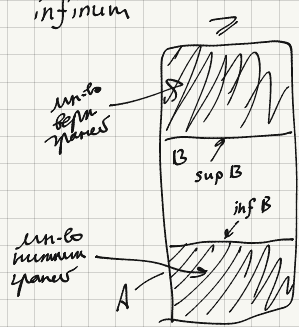 infinum
мн-во
верх
граней
B
sup B
inf B
мн-во
нижних
граней
A